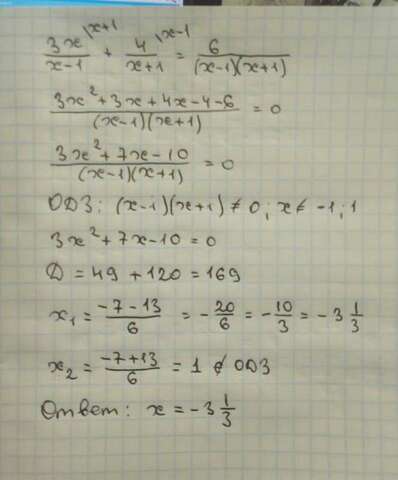 3x/(x-1) |x+1 + 4/(x+1) |x-1 = 6/((x-1)(x+1))
(3x²+3x+4x-4-6)/((x-1)(x+1)) = 0
(3x²+7x-10)/((x-1)(x+1)) = 0
ОДЗ: (x-1)(x+1) ≠ 0; x ≠ -1; 1
3x²+7x-10=0
D = 49 + 120 = 169
x₁ = (-7-13)/6 = -20/6 = -10/3 = -3 1/3
x₂ = (-7+13)/6 = 1 ∉ ОДЗ
Ответ: x = -3 1/3